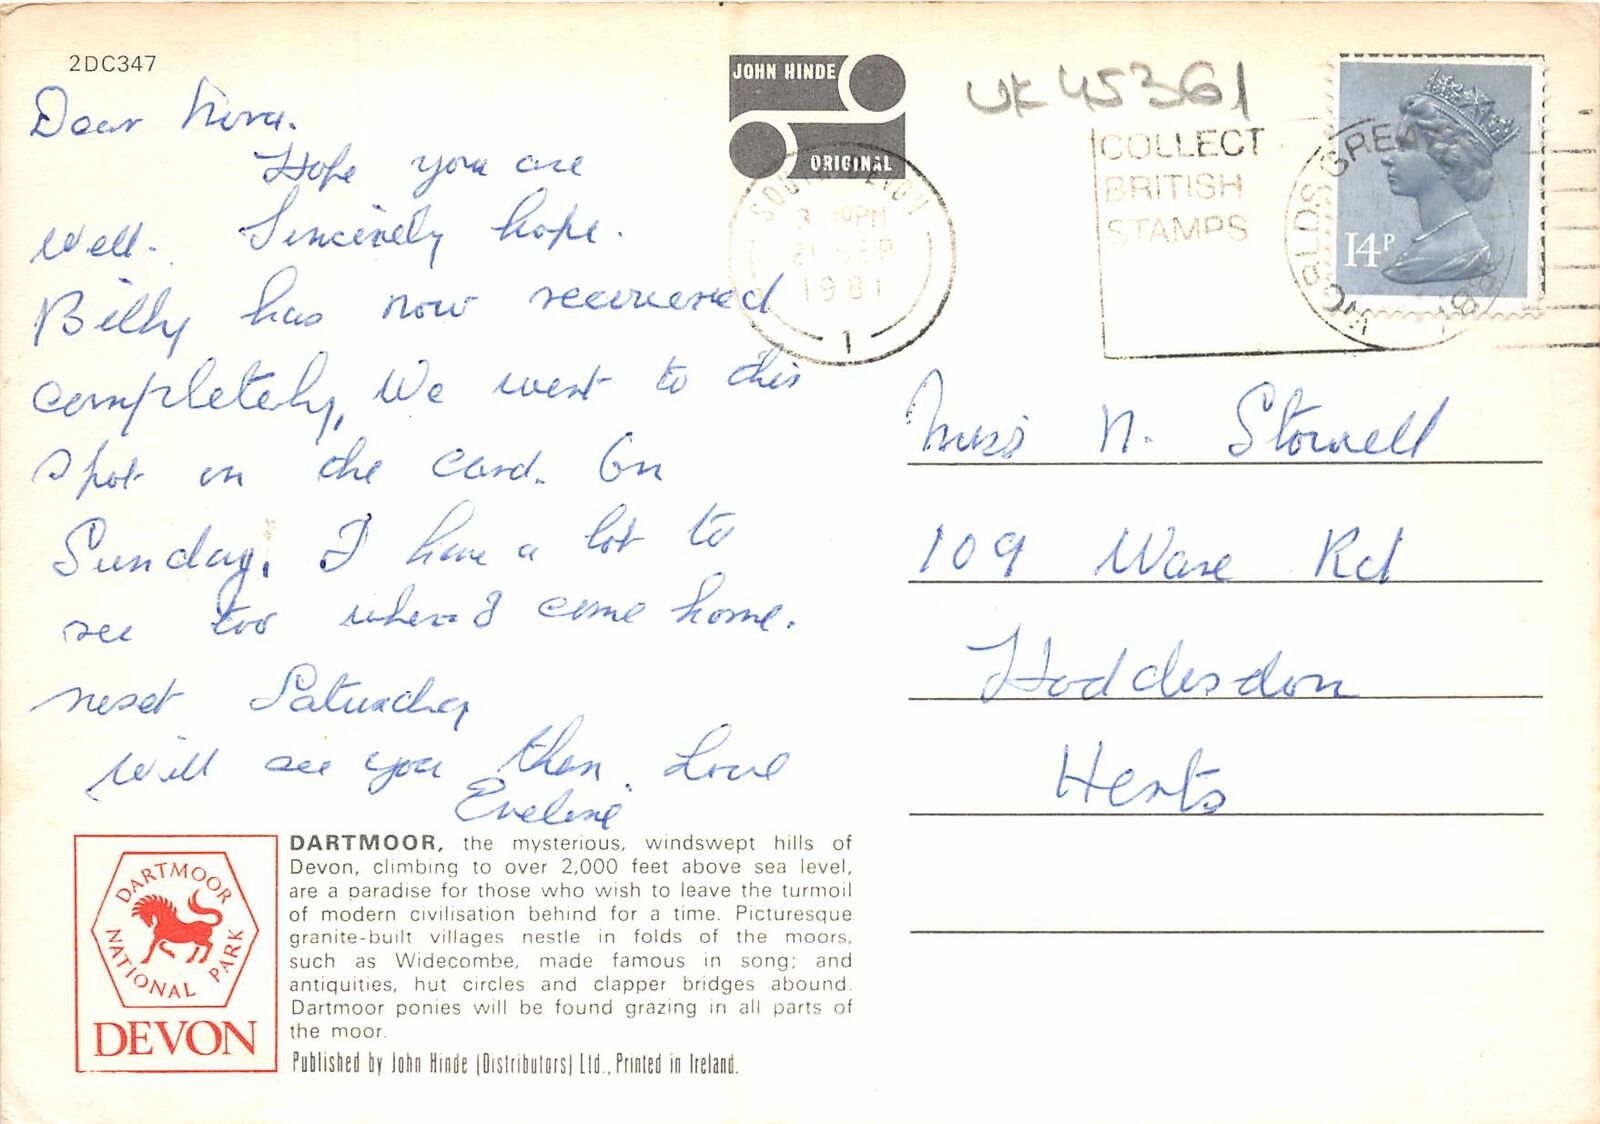 2DC347
Dear Nora.
Hope you are
well. Sincerely hope.
Billy has now recuvered
completely, We went to this
spot on the card. On
Sunday. I have a lot to
see too when I come home.
next Saturday
will see you then. Love
Eveline
JOHN HINDE
ORIGINAL
UK 45361
SOUTH DEVON
PM
SEP
1981
1
COLLECT
BRITISH
STAMPS
WORLDS GREATEST HOBBY
14P
Miss N. Stowell
109 Ware Rd
Hoddesdon
Herts
DARTMOOR
NATIONAL PARK
DEVON
DARTMOOR, the mysterious, windswept hills of
Devon, climbing to over 2,000 feet above sea level,
are a paradise for those who wish to leave the turmoil
of modern civilisation behind for a time. Picturesque
granite-built villages nestle in folds of the moors,
such as Widecombe, made famous in song; and
antiquities, hut circles and clapper bridges abound.
Dartmoor ponies will be found grazing in all parts of
the moor.
Published by John Hinde (Distributors) Ltd., Printed in Ireland.